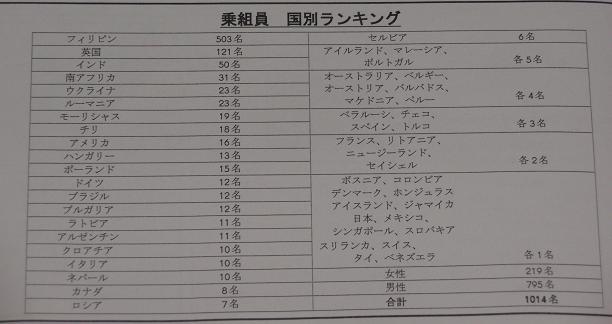 乗組員 国別ランキング
フィリピン 503名
英国 121名
インド 50名
南アフリカ 31名
ウクライナ 23名
ルーマニア 23名
モーリシャス 19名
チリ 18名
アメリカ 16名
ハンガリー 13名
ポーランド 15名
ドイツ 12名
ブラジル 12名
ブルガリア 12名
ラトビア 11名
アルゼンチン 11名
クロアチア 10名
イタリア 10名
ネパール 10名
カナダ 8名
ロシア 7名
セルビア 6名
アイルランド、マレーシア、
ポルトガル 各5名
オーストラリア、ベルギー、
オーストリア、バルバドス、
マケドニア、ペルー 各4名
ベラルーシ、チェコ、
スペイン、トルコ 各3名
フランス、リトアニア、
ニュージーランド、
セイシェル 各2名
ボスニア、コロンビア
デンマーク、ホンジュラス
アイスランド、ジャマイカ
日本、メキシコ、
シンガポール、スロバキア
スリランカ、スイス、
タイ、ベネズエラ 各1名
女性 219名
男性 795名
合計 1014名